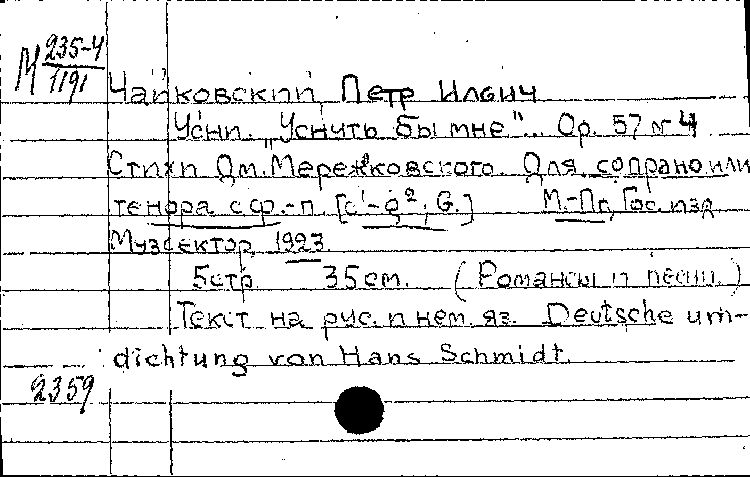 М 235-4
1191
Чайковский, Петр Ильич
Усни. „Уснуть бы мне"... Op. 57 № 4
Стихи Дм. Мережковского. Для сопрано или
тенора с ф.-п. [c¹-g²; G.] М.-Пг, Гос. изд.
Музсектор, 1923.
5 стр. 35 см. (Романсы и песни.)
Текст на рус. и нем. яз. Deutsche um-
dichtung von Hans Schmidt.
2359